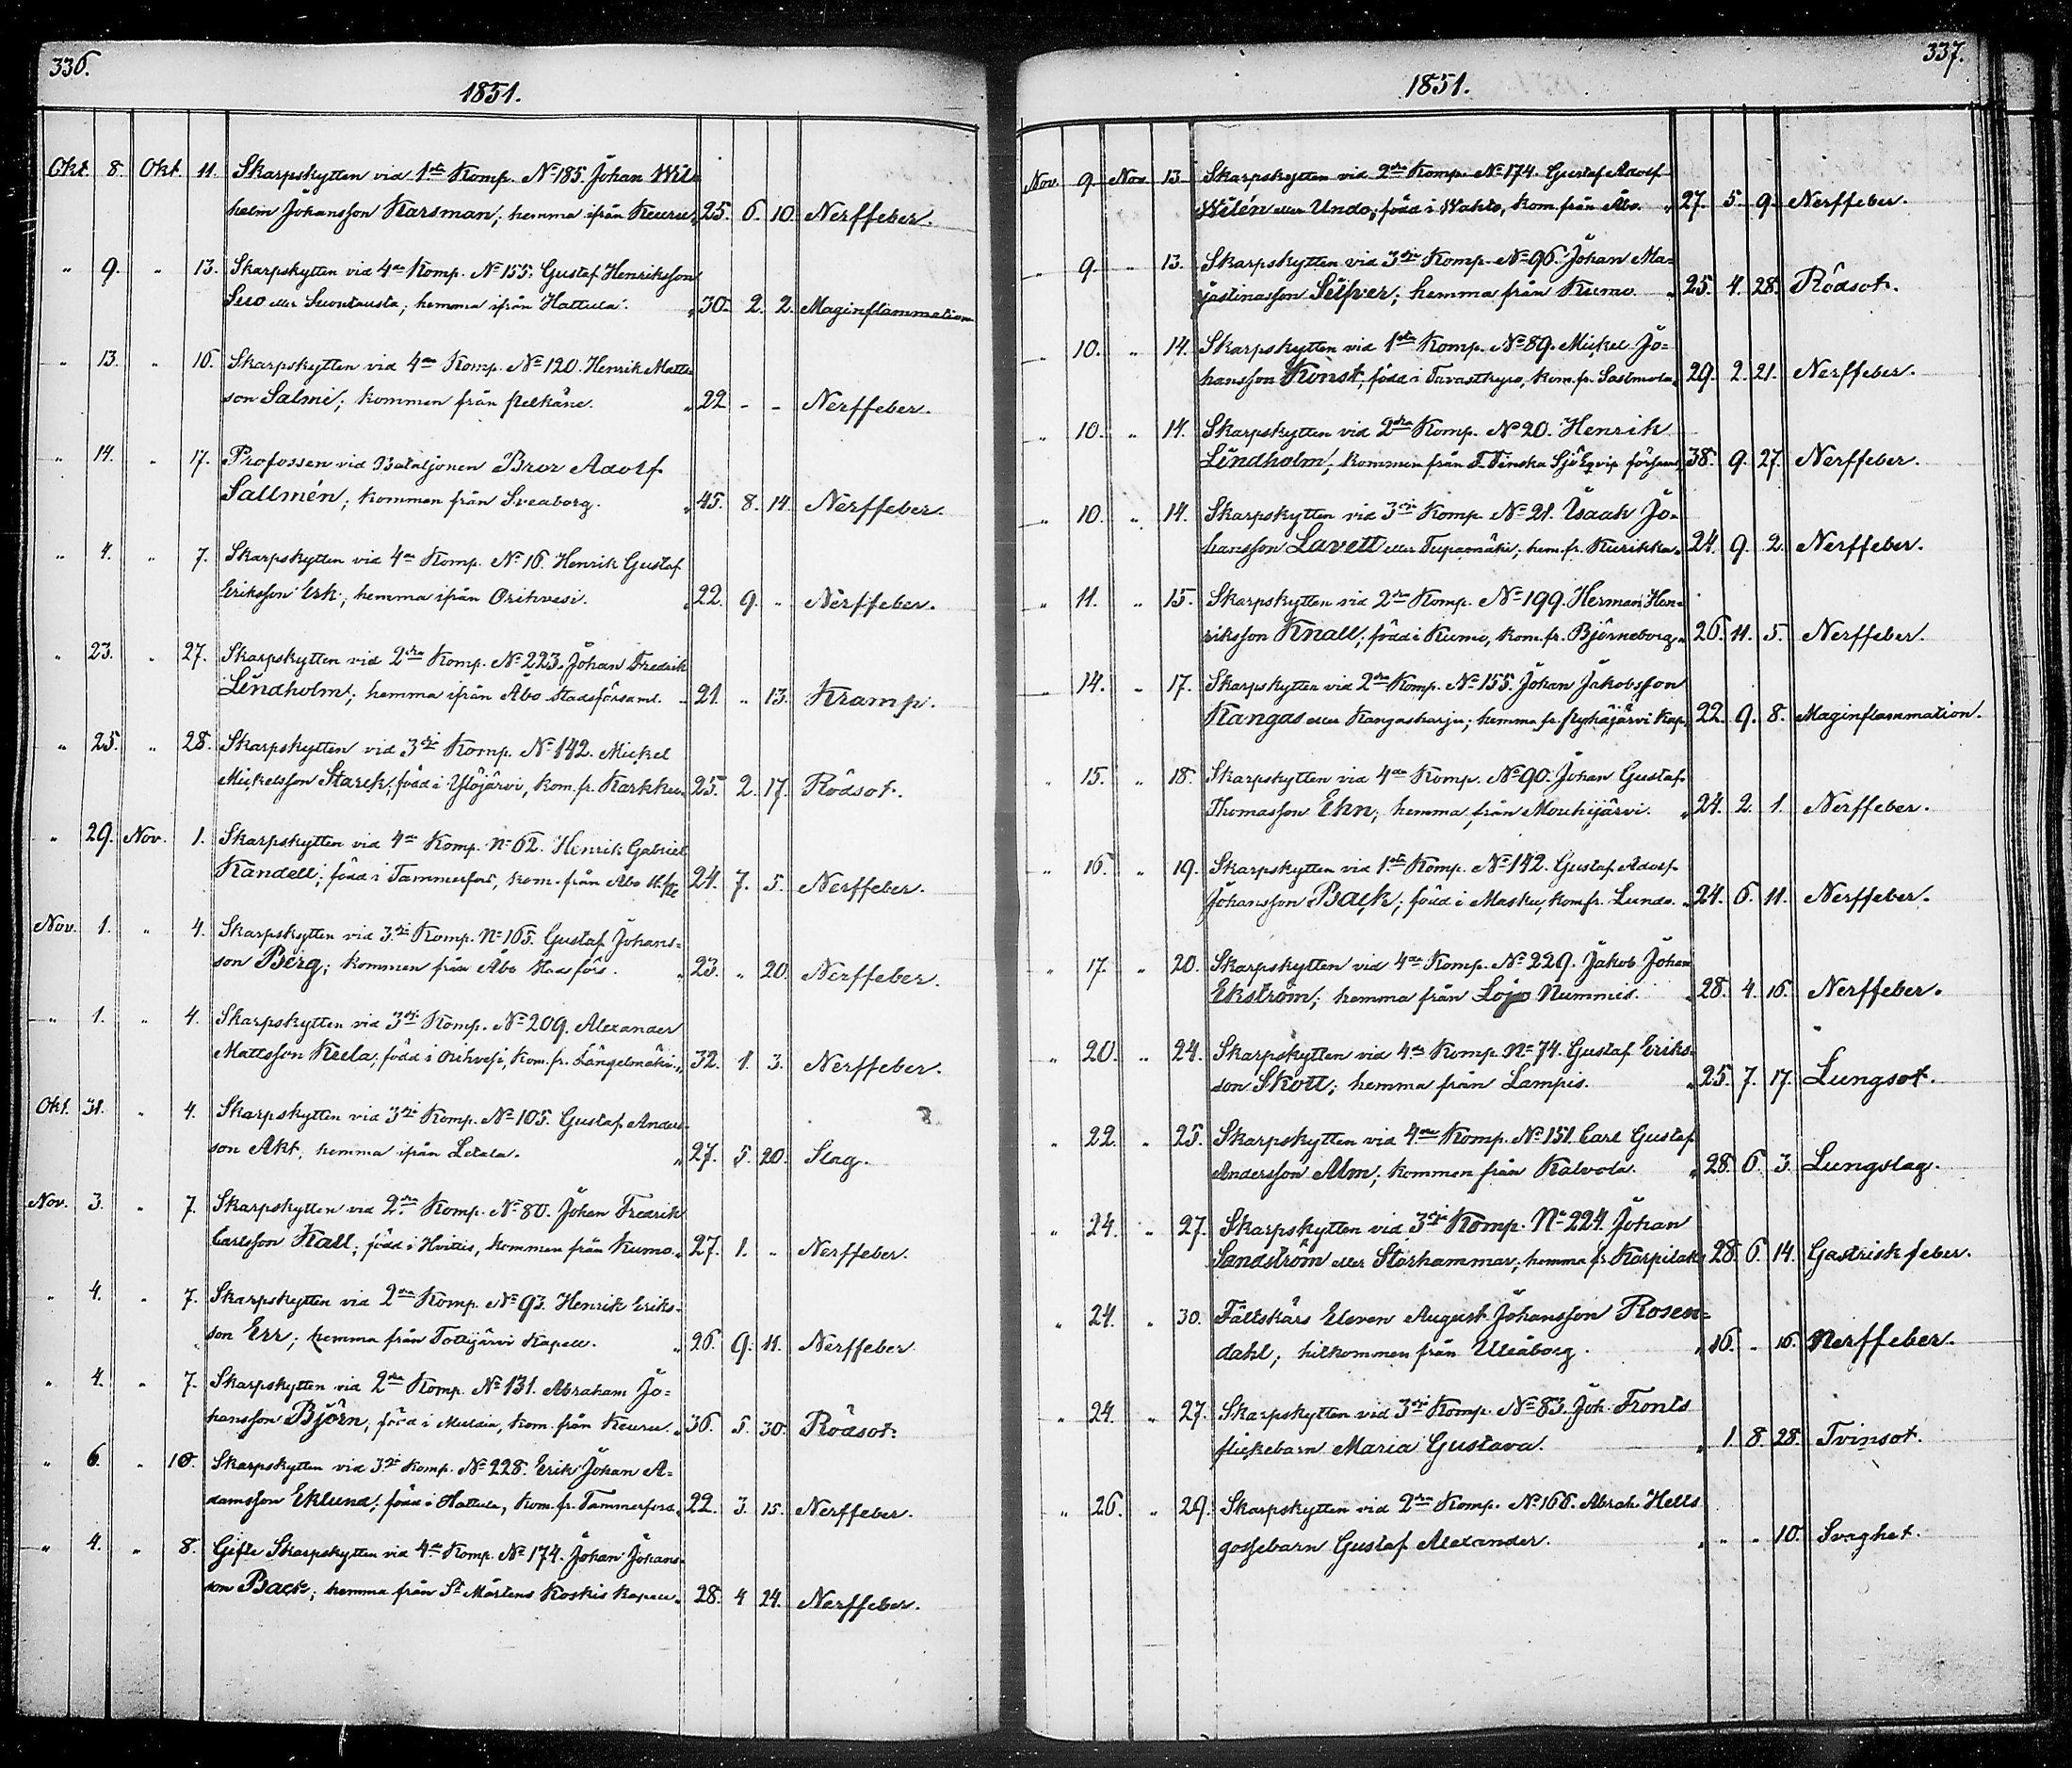 336.
1851.
Okt. 8. Okt. 11. Skarpskytten vid 1sta Komp. No 185. Johan Wil-
helm Johansson Karsman; hemma ifrån Keuru. 25. 6. 10. Nerffeber.
" 9. " 13. Skarpskytten vid 4de Komp. No 155. Gustaf Henriksson
Suo eller Suontausta; hemma ifrån Hattula. " 30. 2. 2. Maginflammation
" 13. " 16. Skarpskytten vid 4de Komp. No 120. Henrik Matts-
son Salmi; kommen från Pelkäne. " 22 - - Nerffeber.
" 14. " 17. Profossen vid Bataljonen Bror Adolf
Sallmén; kommen från Sveaborg. " 45. 8. 14. Nerffeber.
" 4. " 7. Skarpskytten vid 4de Komp. No 16. Henrik Gustaf
Eriksson Erk; hemma ifrån Orihvesi. " 22. 9. " Nerffeber.
" 23. " 27. Skarpskytten vid 2dra Komp. No 223. Johan Fredrik
Lindholm; hemma ifrån Åbo Stadsförsaml. " 21. " 13. Kramp.
" 25. " 28. Skarpskytten vid 3dje Komp. No 142. Mickel
Mickelsson Starck; född i Ylöjärvi, kom. fr. Karkku. 25. 2. 17. Rödsot.
" 29. Nov. 1. Skarpskytten vid 4de Komp. No 62. Henrik Gabriel
Kandell; född i Tammerfors, kom. från Åbo 24. 7. 5. Nerffeber.
Nov. 1. " 4. Skarpskytten vid 3dje Komp. No 165. Gustaf Johans-
son Berg; kommen från Åbo Stadsförs. " 23. " 20. Nerffeber.
" 1. " 4. Skarpskytten vid 3dje Komp. No 209. Alexander
Mattsson Keela; född i Orihvesi, kom. fr. Längelmäki. " 32. 1. 3. Nerffeber.
Okt. 31. " 4. Skarpskytten vid 3dje Komp. No 105. Gustaf Anders-
son Akt; hemma ifrån Letala. " 27. 5. 20. Slag.
Nov. 3. " 7. Skarpskytten vid 2dra Komp. No 80. Johan Fredrik
Carlsson Kall; född i Hvittis, kommen från Kumo. " 27. 1. " Nerffeber.
" 4. " 7. Skarpskytten vid 2dra Komp. No 93. Henrik Eriks-
son Err; hemma från Tottijärvi Kapell. " 26. 9. 11. Nerffeber.
" 4. " 7. Skarpskytten vid 2dra Komp. No 131. Abraham Jo-
hansson Björn; född i Multia, kom. från Keuru. " 36. 5. 30. Rödsot.
" 6. " 10. Skarpskytten vid 3dje Komp. No 228. Erik Johan A-
damsson Eklund; född i Hattula, kom. fr. Tammerfors. 22. 3. 15. Nerffeber.
" 4. " 8. Gifte Skarpskytten vid 4de Komp. No 174. Johan Johans-
son Back; hemma från St Mårtens Koskis Kapell. 28. 4 24. Nerffeber.
337.
1851.
Nov. 9. Nov. 13. Skarpskytten vid 2dra Komp. No 174. Gustaf Adolf
Wilén eller Undo; född i Wahto, kom. från Åbo. " 27. 5. 9. Nerffeber.
" 9. " 13. Skarpskytten vid 3dje Komp. No 96. Johan Ma-
jastinasson Silfver; hemma från Kumo. " 25. 4. 28. Rödsot.
" 10. " 14. Skarpskytten vid 1sta Komp. No 89. Mickel Jo-
hansson Konst; född i Tavastkyro, kom. fr. Sastmola. 29. 2. 21. Nerffeber.
" 10. " 14. Skarpskytten vid 2dra Komp. No 20. Henrik
Lindholm; kommen från F. Finska Sjö Eqvip. församl. 38. 9. 27. Nerffeber.
" 10. " 14. Skarpskytten vid 3dje Komp. No 21. Isaak Jo-
hansson Lavett eller Tupamäki; hem. fr. Kurikka. 24. 9. 2. Nerffeber.
" 11. " 15. Skarpskytten vid 2dra Komp. No 199. Herman Hen-
riksson Knall; född i Kumo, kom. fr. Björneborg. " 26. 11. 5. Nerffeber.
" 14. " 17. Skarpskytten vid 2dra Komp. No 155. Johan Jakobsson
Kangas eller Kangasharju; hemma fr. Pyhäjärvi Kap. 22. 9. 8. Maginflammation.
" 15. " 18. Skarpskytten vid 4de Komp. No 90. Johan Gustaf
Thomasson Ehn; hemma från Mouhijärvi. " 24. 2. 1. Nerffeber.
" 16. " 19. Skarpskytten vid 1sta Komp. No 142. Gustaf Adolf
Johansson Back; född i Masku, kom fr. Lundo. " 24. 6. 11. Nerffeber.
" 17. " 20. Skarpskytten vid 4de Komp. No 229. Jakob Johan
Ekström; hemma från Lojo Nummis. " 28. 4. 16. Nerffeber.
" 20. " 24. Skarpskytten vid 4de Komp. No 74. Gustaf Eriks-
son Skott; hemma från Lampis. " 25. 7. 17. Lungsot.
" 22. " 25. Skarpskytten vid 4de Komp. No 151. Carl Gustaf
Andersson Alm; kommen från Kalvola. " 28. 6. 3. Lungslag.
" 24. " 27. Skarpskytten vid 3dje Komp. No 224. Johan
Sandström eller Storhammar; hemma fr. Korpilaks 28. 6. 14. Gastrisk feber.
" 24. " 30. Fältskärs Eleven August Johansson Rosen-
dahl; hitkommen från Uleåborg. " 16. " 16. Nerffeber.
" 24. " 27. Skarpskytten vid 3dje Komp. No 83. Joh. Fronts
flickebarn Maria Gustava. " 1. 8. 28. Tvinsot.
" 26. " 29. Skarpskytten vid 2dra Komp. No 168. Abrah. Hells
gossebarn Gustaf Alexander. " " " 10. Svaghet.